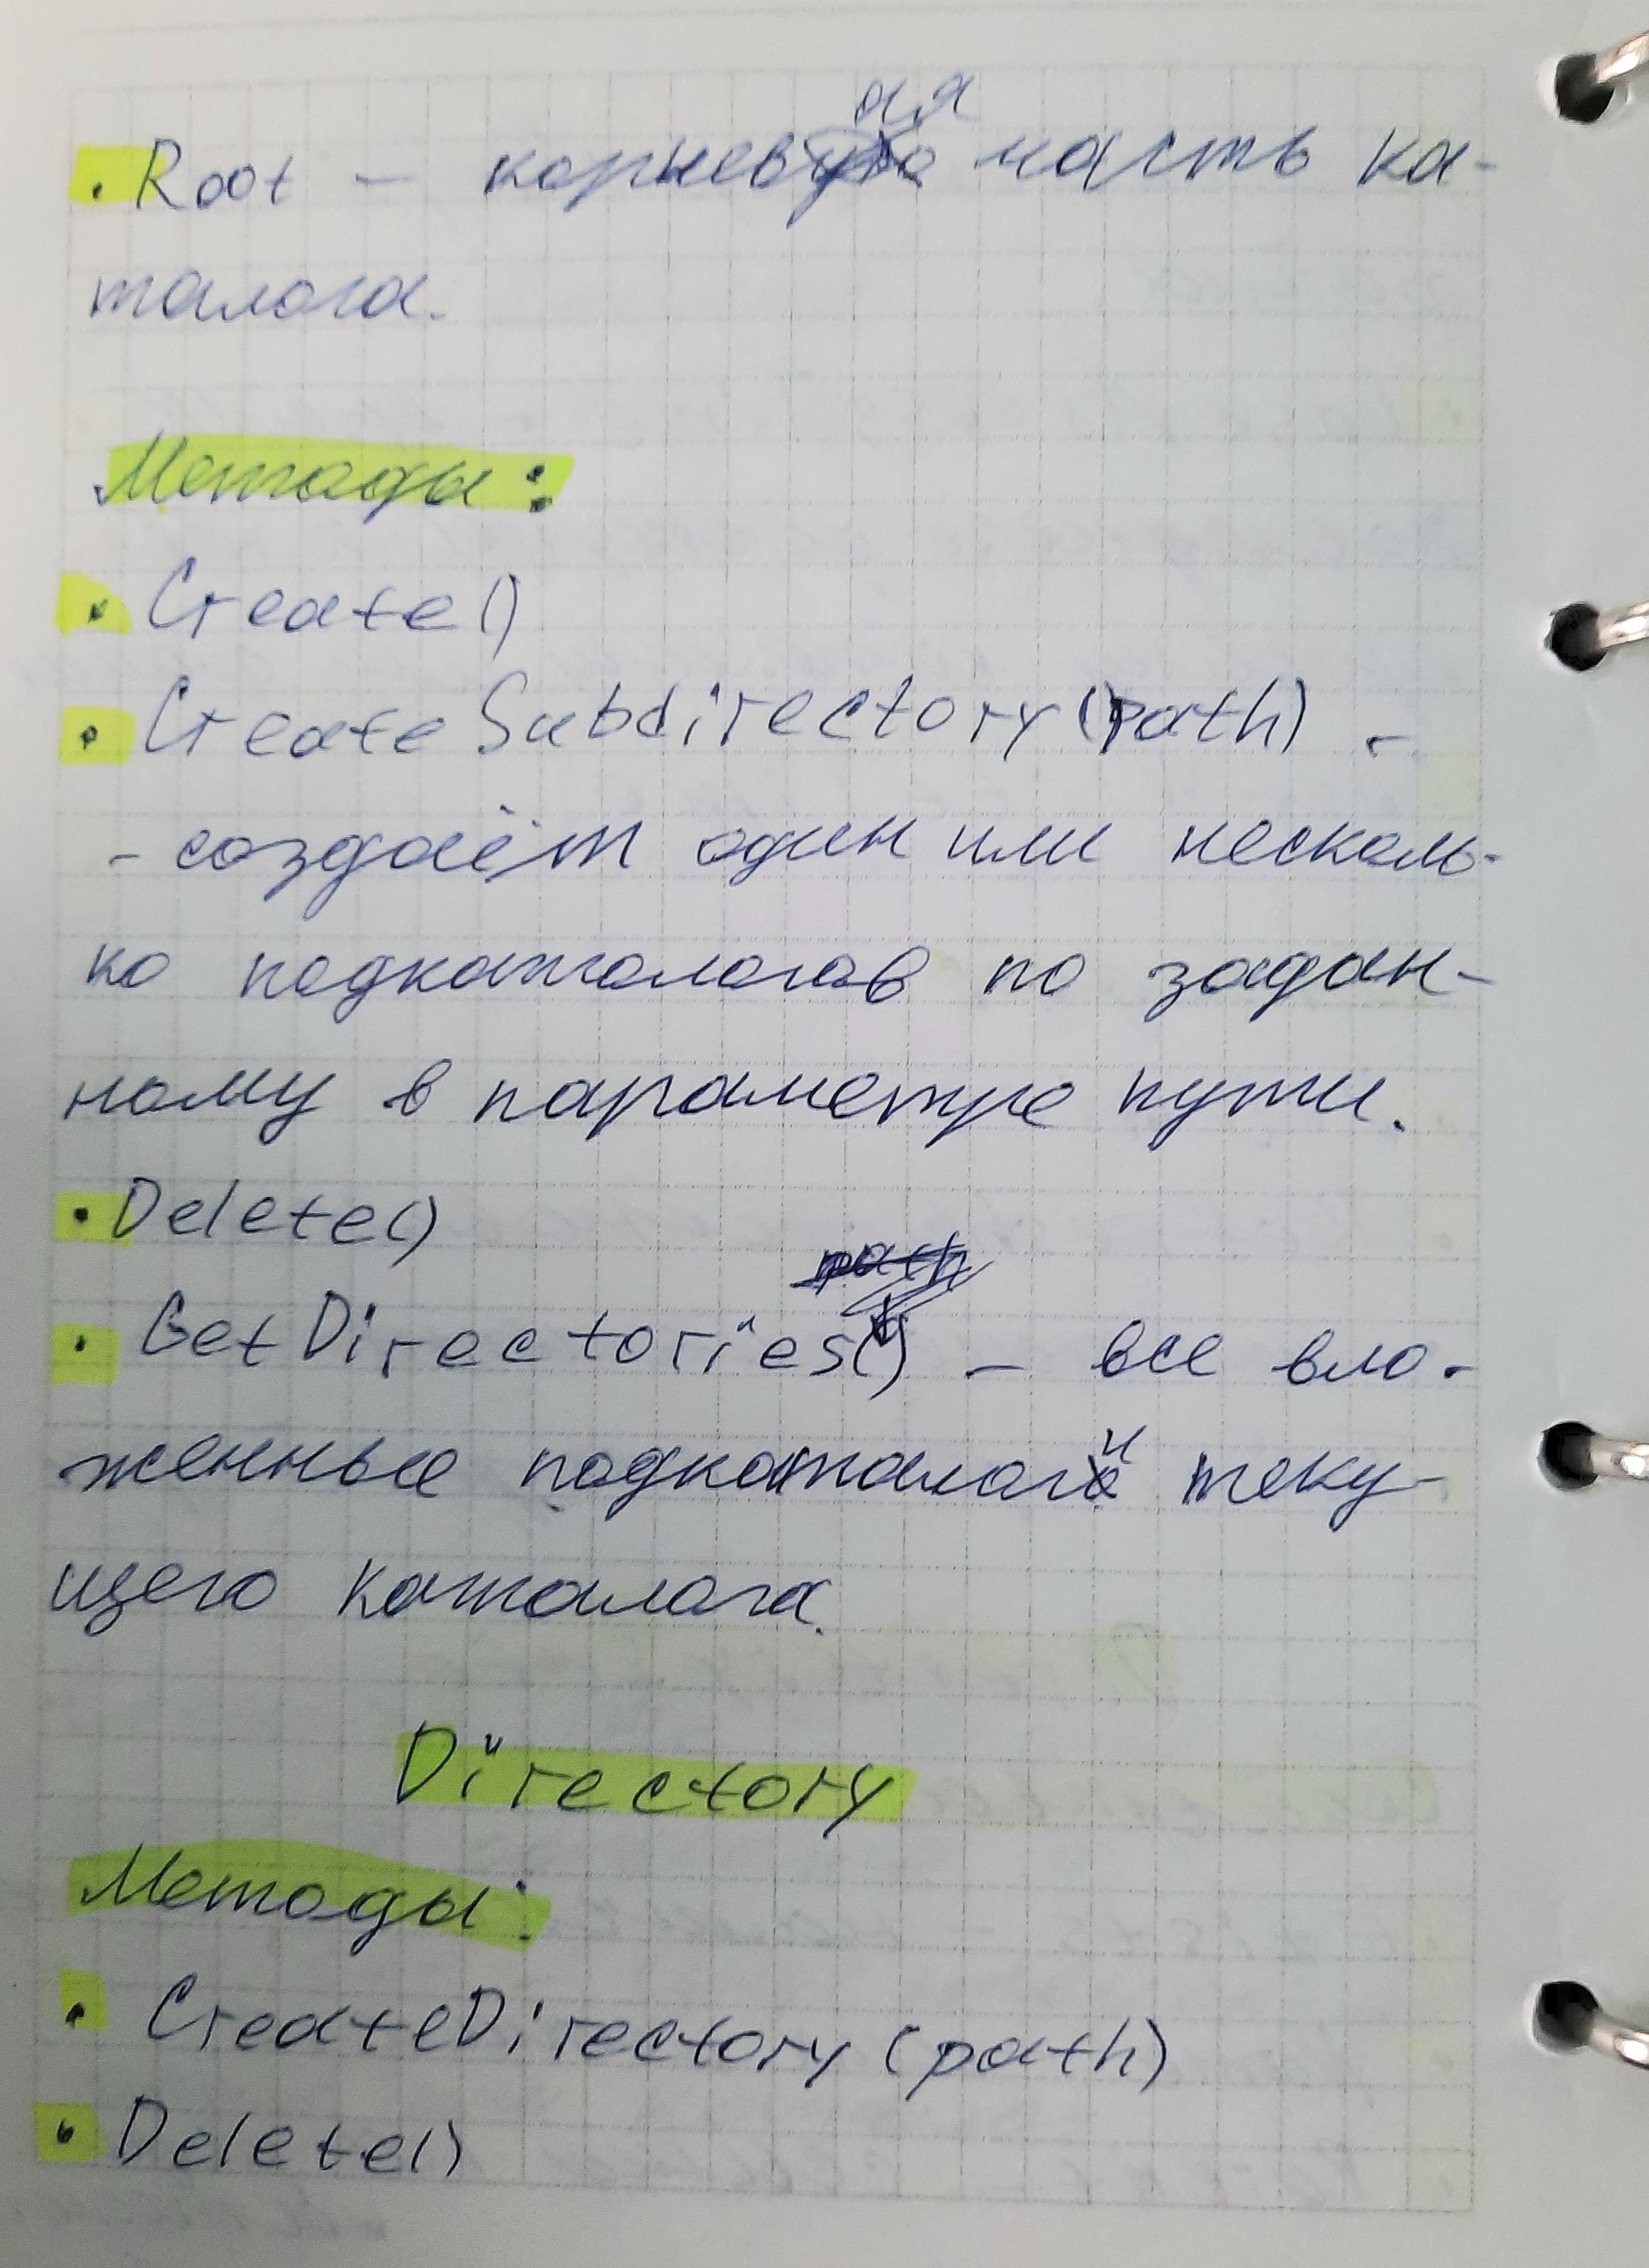 • Root – корневая часть ка-
талога.
Методы:
• Create()
• CreateSubdirectory(path) -
- создаёт один или несколь-
ко подкаталогов по задан-
ному в параметре пути.
• Delete()
• GetDirectories() – все вло-
женные подкаталоги теку-
щего каталога.
Directory
Методы:
• CreateDirectory (path)
• Delete()